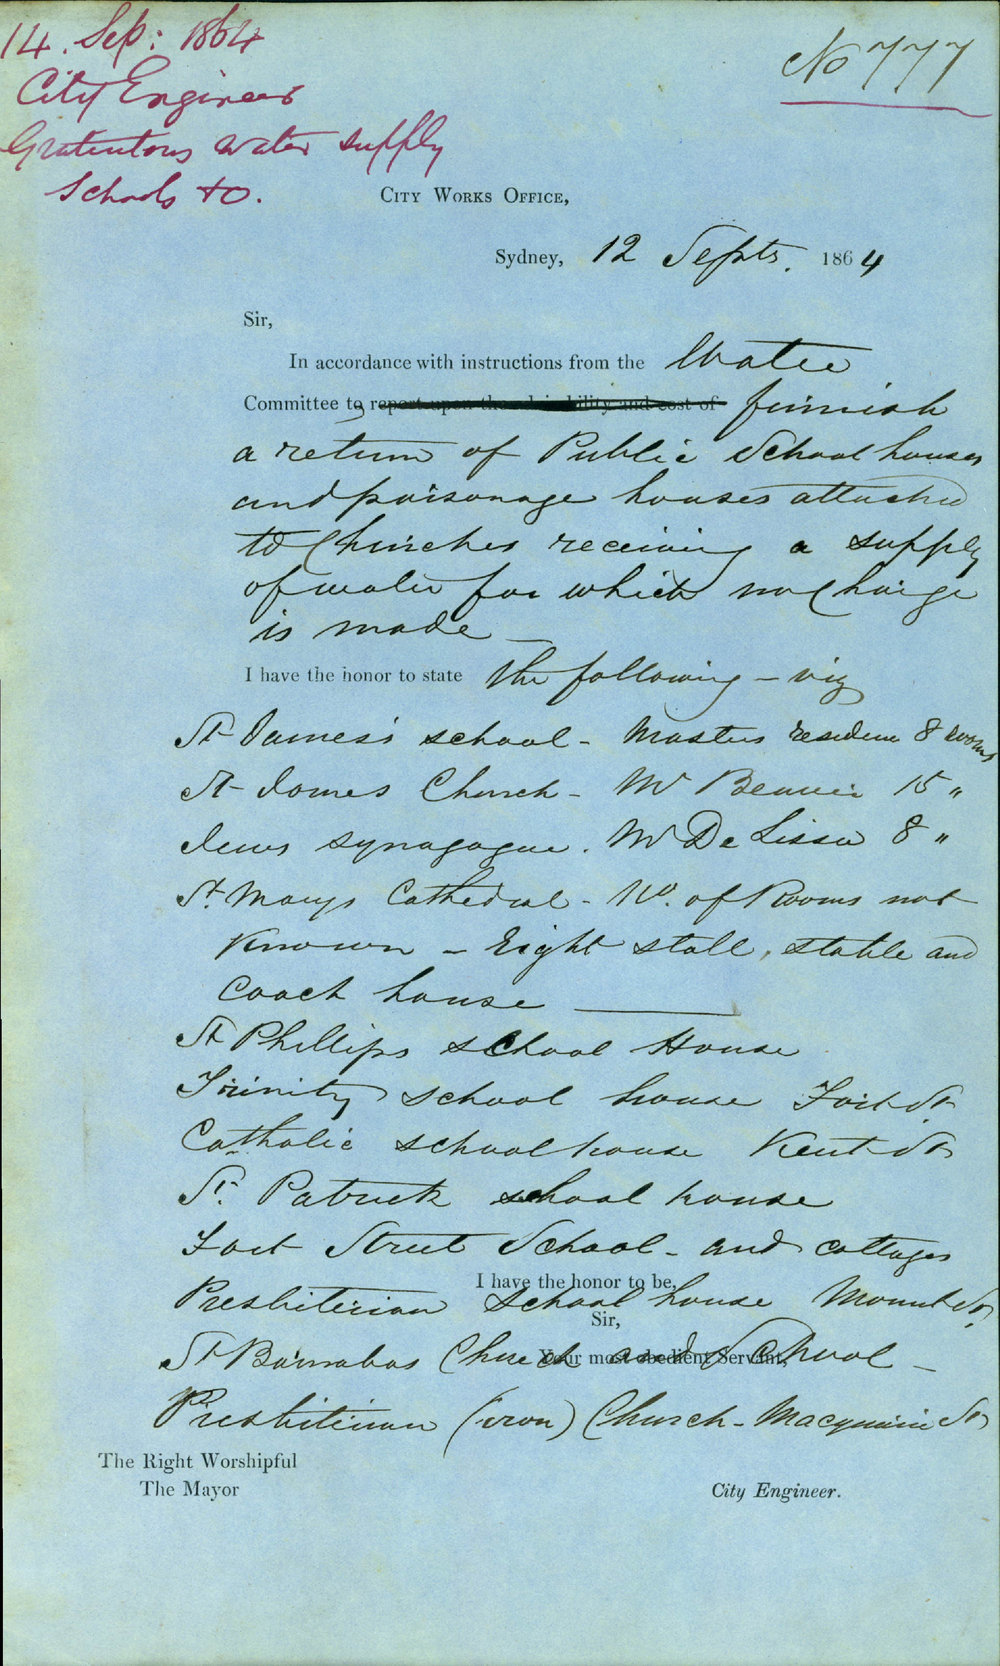 14. Sep: 1864
No 777
City Engineer
Gratuitous water supply
Schools &c.
City Works Office,
Sydney, 12 Septr. 1864
Sir,
In accordance with instructions from the Water
Committee to, report upon the advisability and cost of furnish
a return of Public School houses
and parsonage houses attached
to Churches receiving a supply
of water for which no Charge
is made —
I have the honor to state the following — viz
St James's school - Masters residence 8 rooms
St James Church - Mr 15 "
Jews synagogue. Mr De Lissa 8 "
St. Marys Cathedral - No. of Rooms not
Known — Eight stall, stable and
Coach house ———
St Phillips School House
Trinity school house Fort St
Catholic school house Kent St
St. Patrick school house
Fort Street School - and cottages
I have the honor to be,
Presbiterian School house Mount St
Sir,
St Barnabas Church and School —
Your most obedient Servant,
Presbiterian (iron) Church - Macquarie St
The Right Worshipful
The Mayor
City Engineer.